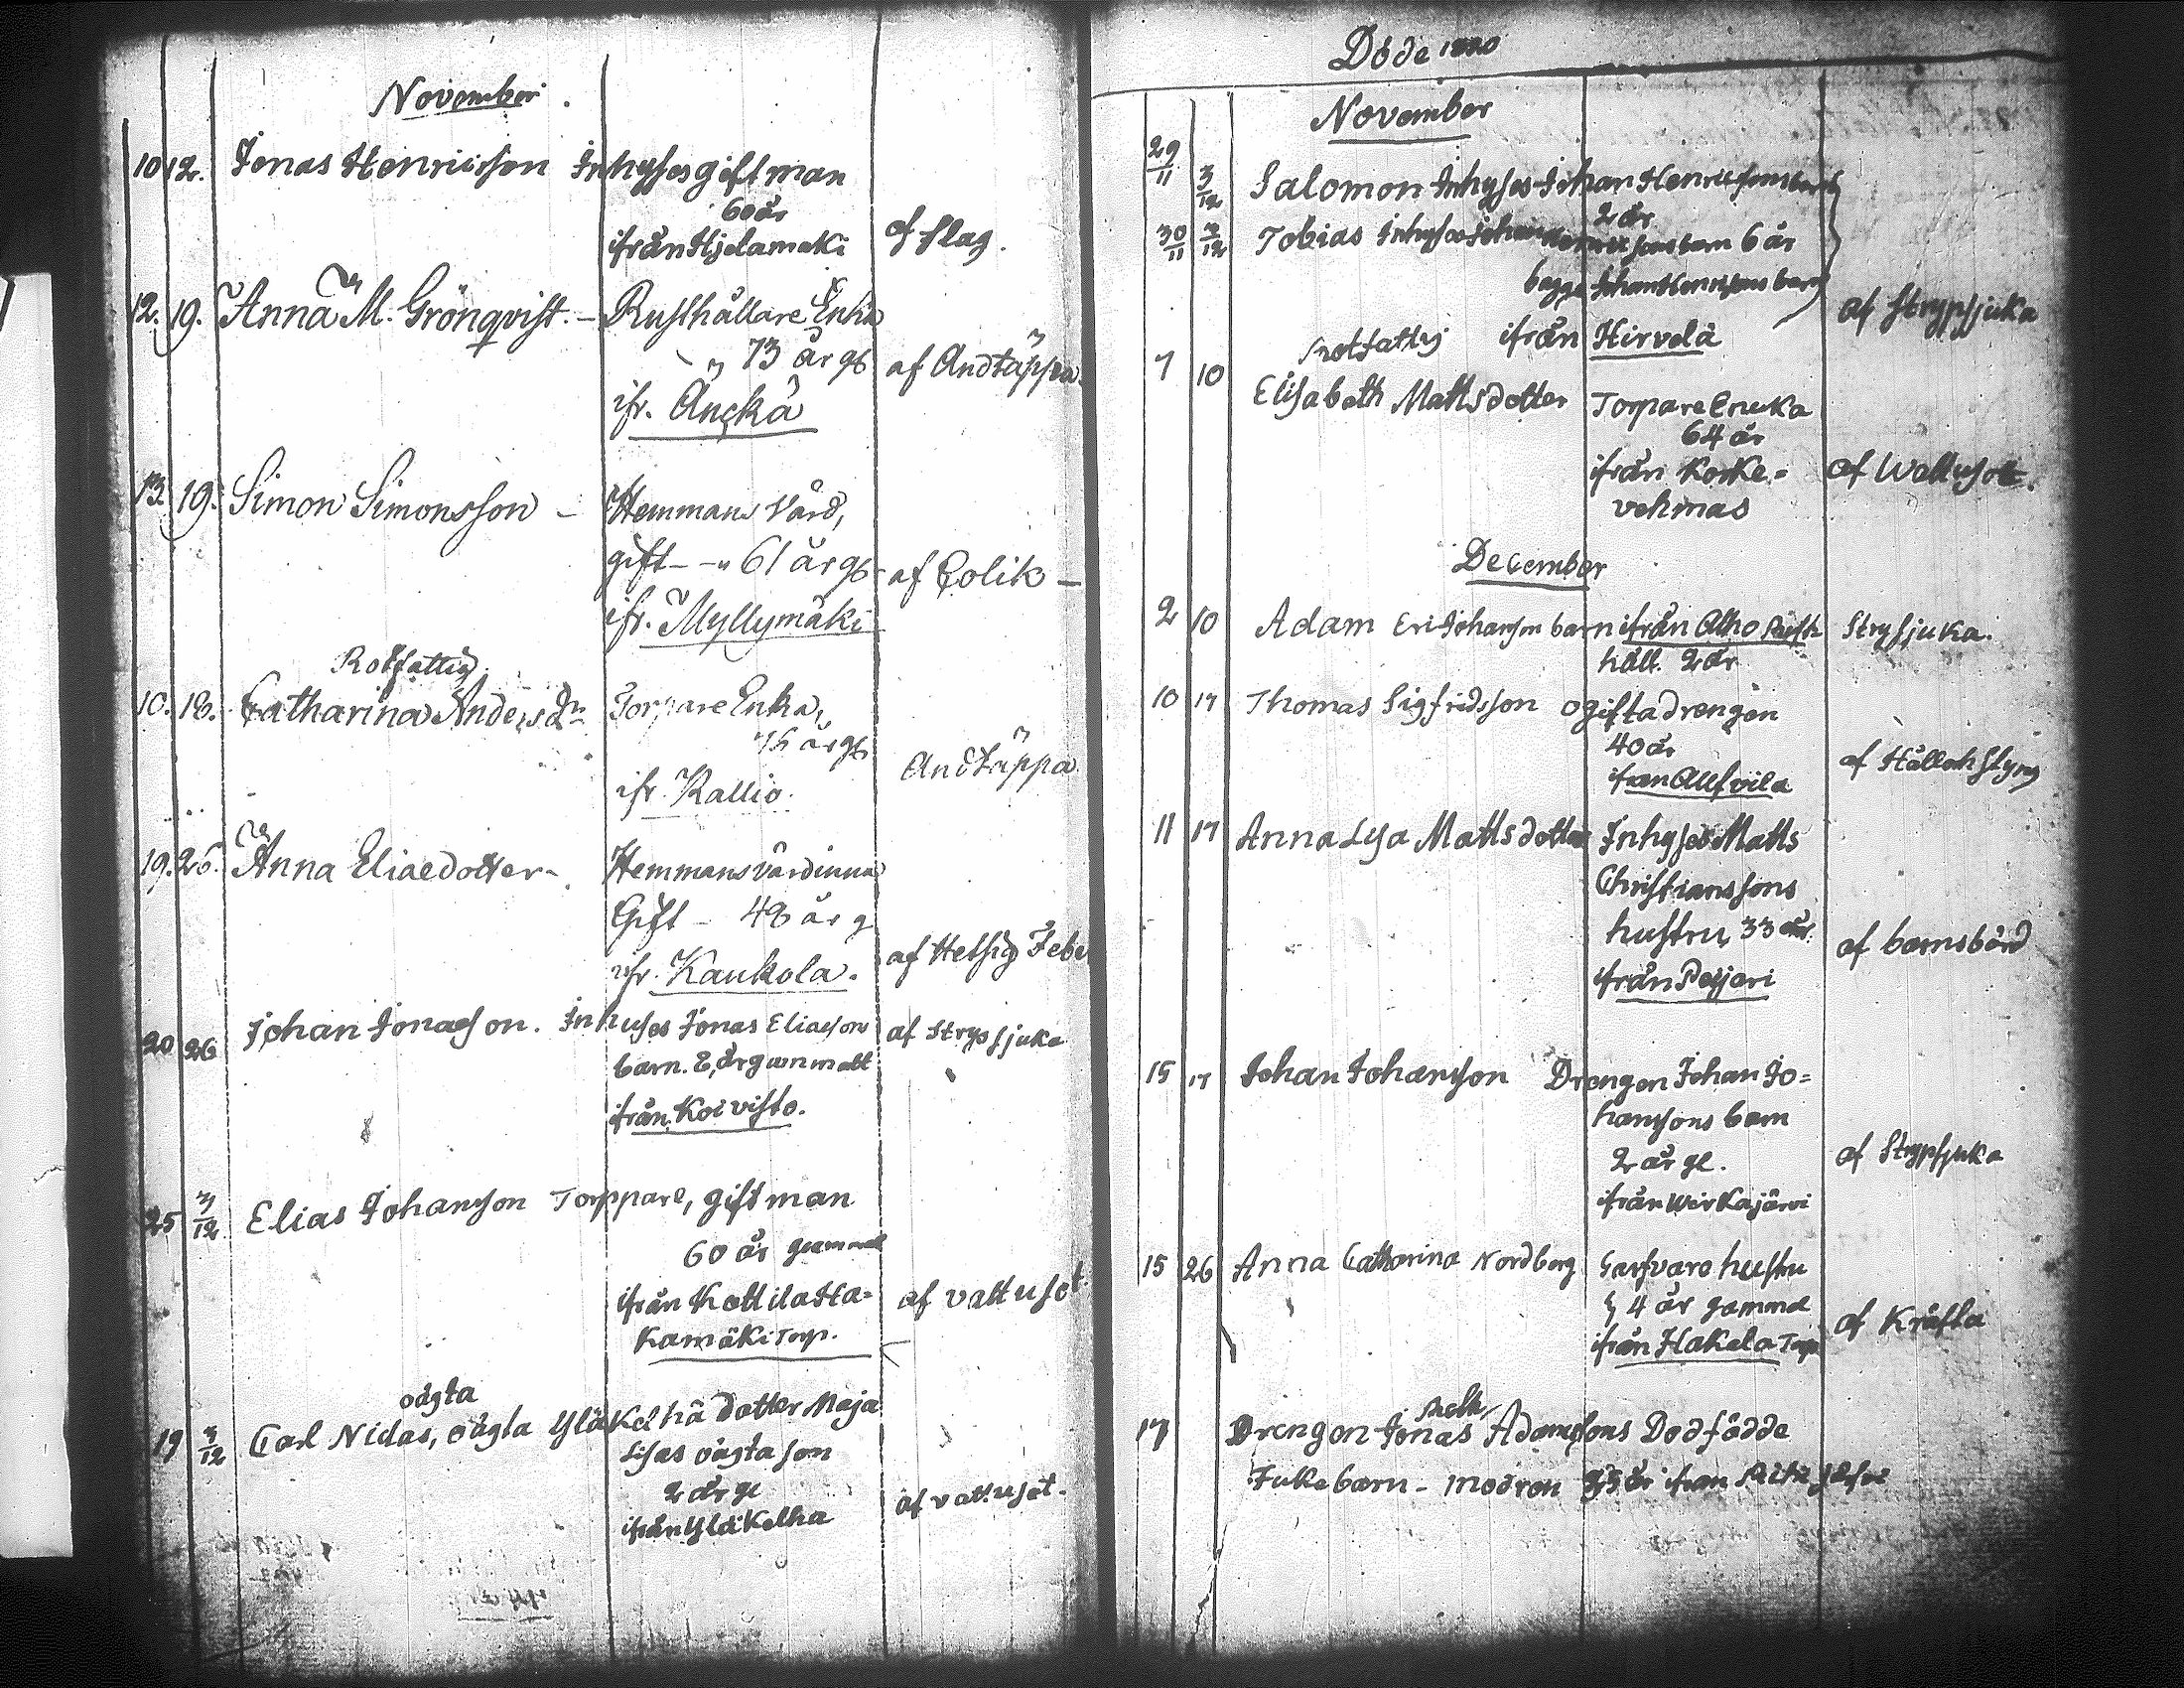 November
10 12. Jonas Henricsson Inhyses gift man
60 år
ifrån Hjelamäki af slag.
12. 19. Anna M. Grönqvist. – Rusthållare Enka
„ 73 år gl af Andtäppa.
ifr. Änckä
13 19. Simon Simonsson – Hemmans Värd,
gift – „ 61 år gl af Colik –
ifr. Myllymäki
Rotfattig
10. 18. Catharina Andersdr Torpare Enka,
år gl
ifr. Kallio. Andtäppa
19. 26. Anna Eliaedotter – Hemmans Värdinna
Gift – 48 år g
ifr. Kaukola. af Hetsig Feber
20 26 Johan Jonaeson. Inhyses Jonas Eliaesons af Strypsjuka
barn. 8 år gammalt
ifrån Koivisto.
25 3/12 Elias Johansson Torppare, gift man
60 år gammal
ifrån Kottila Ha-
kamäki Torp. af vattusot
oägta
19 3/12 Carl Niclas, oägta Yläkelhä dotter Maja
Lisas oägta son
2 år gl af vattusot.
ifrån Yläkelhä
Döde 1820
November
29/11 3/12 Salomon Inhyses Johan Henricssons barn
2 år
30/11 3/12 Tobias Inhyses Johan Henricssons barn 6 år
begge Johan Henricssons barn
ifrån Hirvelä af Strypsjuka
Rotfattig
7 10 Elisabeth Mattsdotter Torpare Encka
64 år
ifrån Korke- af Wattusot.
vehmas
December
2 10 Adam Eric Johansson barn ifrån Alho Rust Strypsjuka.
håll. 2 år
10 17 Thomas Sigfridsson ogifta drengen
40 år
ifrån Allfvila af Håll och Styng
11 17 Anna Lisa Mattsdotter Inhyses Matts
Christianssons
hustru 33 år. af barnsbörd
ifrån Peijari
15 17 Johan Johansson Drengen Johan Jo-
hanssons barn
2 år gl. af Strypsjuka
ifrån Wirkajärvi
15 26 Anna Catharina Nordberg Garfvare hustru
4 år gammal af Kräfta
ifrån Hakala Torp
17 Drengen Jonas Adamssons Dödfödde
barn – modren år ifrån